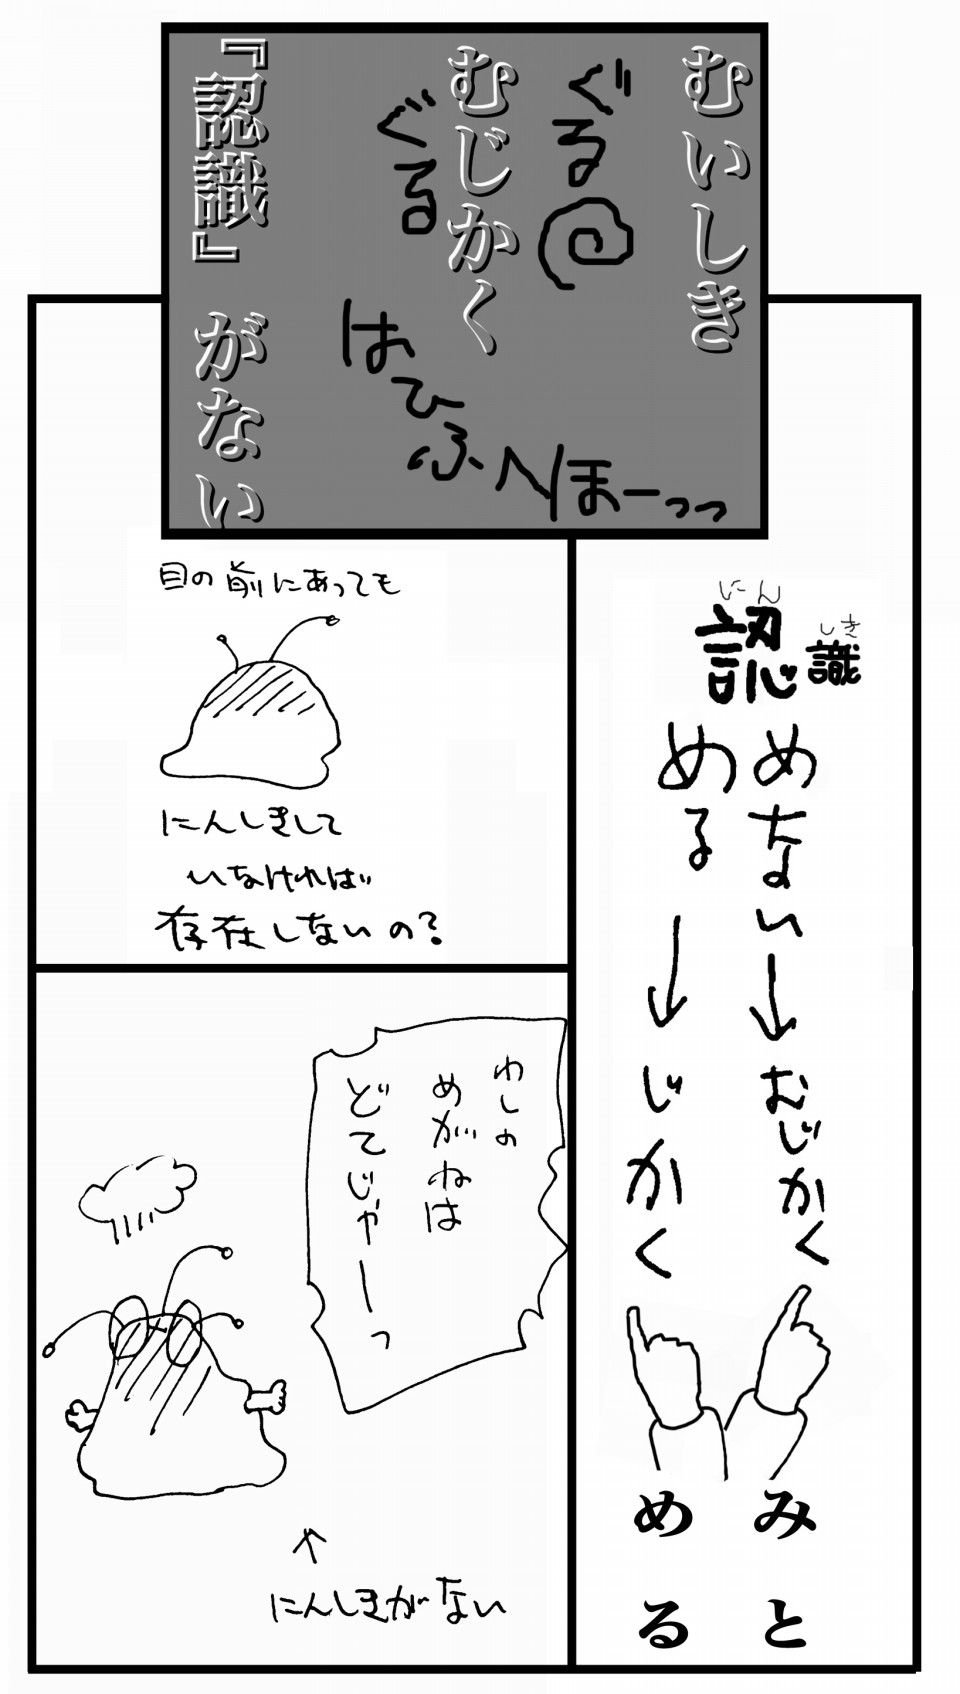 むいしき
ぐる
むじかく
ぐる
はひふへほーっっ
『認識』がない
にん
しき
認識
めない→むじかく
める→じかく
みと
める
目の前にあっても
にんしきして
いなければ
存在しないの？
わしの
めがねは
どてじゃーっ
にんしきがない